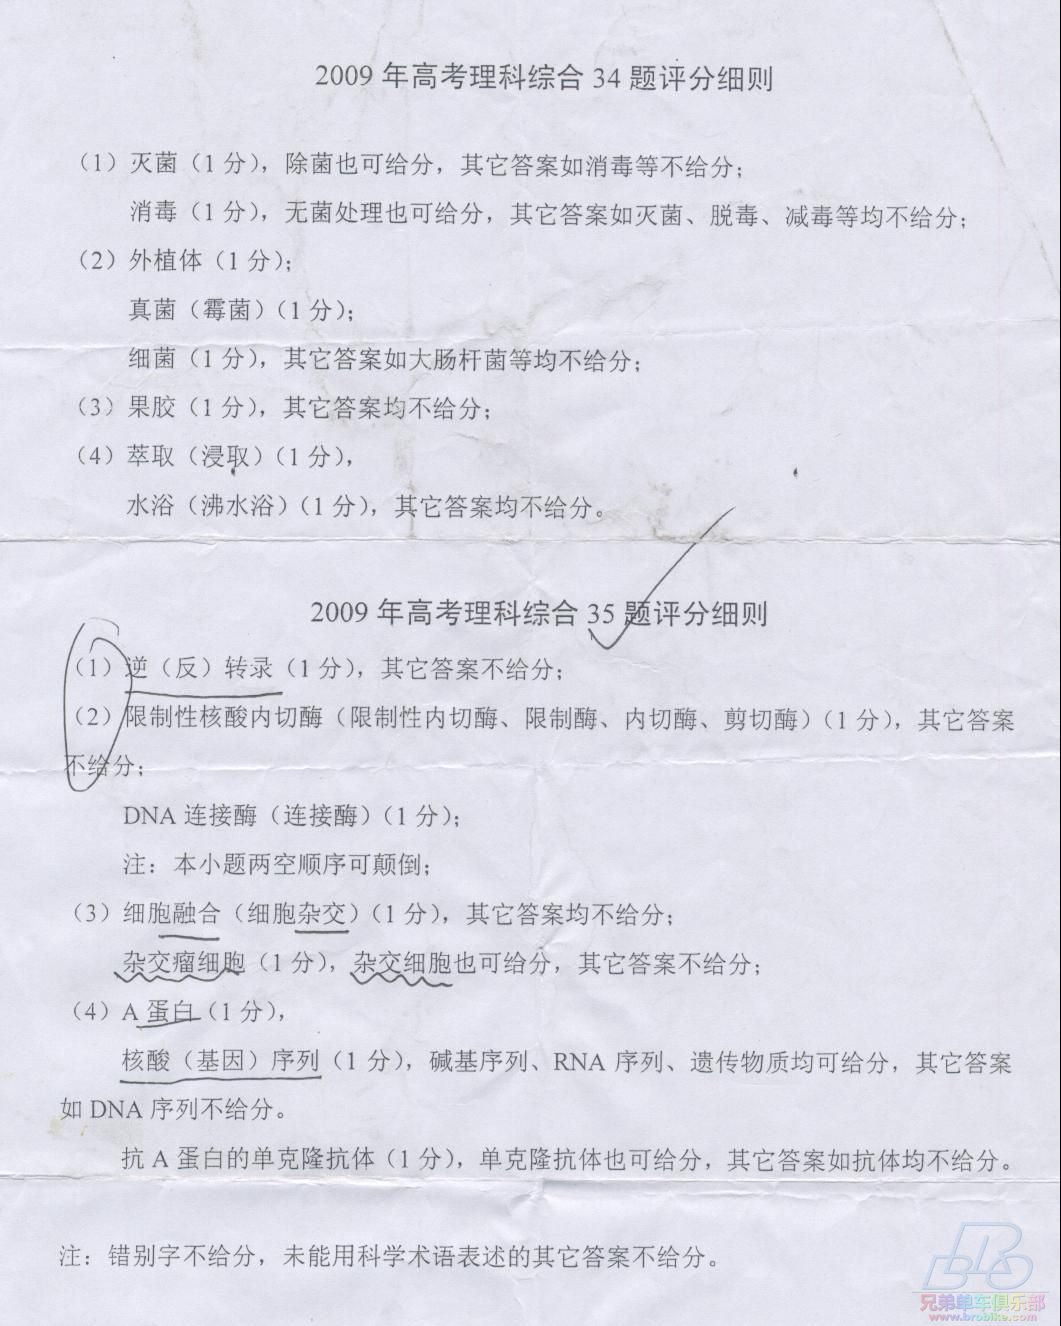 2009 年高考理科综合 34 题评分细则
（1）灭菌（1 分），除菌也可给分，其它答案如消毒等不给分；
消毒（1 分），无菌处理也可给分，其它答案如灭菌、脱毒、减毒等均不给分；
（2）外植体（1 分）；
真菌（霉菌）（1 分）；
细菌（1 分），其它答案如大肠杆菌等均不给分；
（3）果胶（1 分），其它答案均不给分；
（4）萃取（浸取）（1 分），
水浴（沸水浴）（1 分），其它答案均不给分。
2009 年高考理科综合 35 题评分细则
（1）逆（反）转录（1 分），其它答案不给分；
（2）限制性核酸内切酶（限制性内切酶、限制酶、内切酶、剪切酶）（1 分），其它答案
不给分；
DNA 连接酶（连接酶）（1 分）；
注：本小题两空顺序可颠倒；
（3）细胞融合（细胞杂交）（1 分），其它答案均不给分；
杂交瘤细胞（1 分），杂交细胞也可给分，其它答案不给分；
（4）A 蛋白（1 分），
核酸（基因）序列（1 分），碱基序列、RNA 序列、遗传物质均可给分，其它答案
如 DNA 序列不给分。
抗 A 蛋白的单克隆抗体（1 分），单克隆抗体也可给分，其它答案如抗体均不给分。
注：错别字不给分，未能用科学术语表述的其它答案不给分。
BRO
兄弟单车俱乐部
www.brobike.com